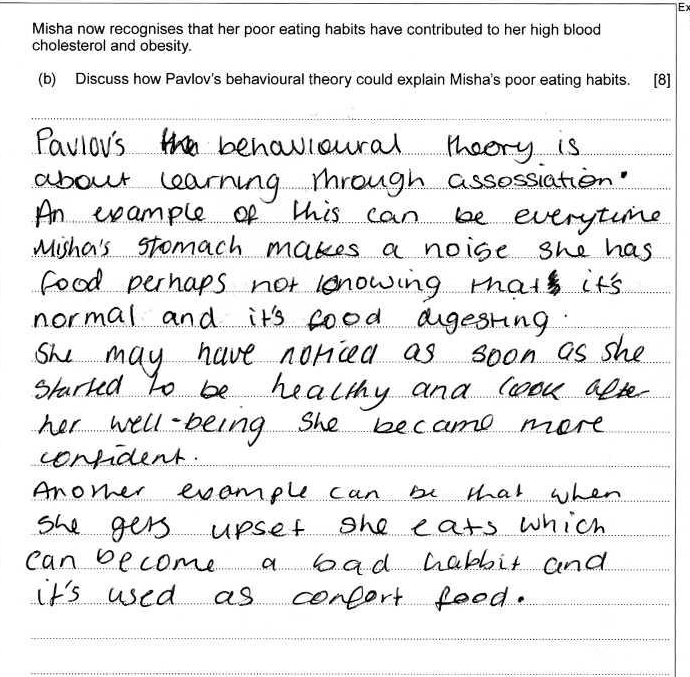 Ex
Misha now recognises that her poor eating habits have contributed to her high blood
cholesterol and obesity.
(b) Discuss how Pavlov's behavioural theory could explain Misha's poor eating habits. [8]
Pavlov's behavioural theory is
about learning through assossiation.
An example of this can be everytime
Misha's stomach makes a noise she has
food perhaps not knowing that it's
normal and it's food digesting.
She may have noticed as soon as she
started to be healthy and look after
her well-being she became more
confident.
Another example can be that when
she gets upset she eats which
can become a bad habbit and
it's used as confort food.